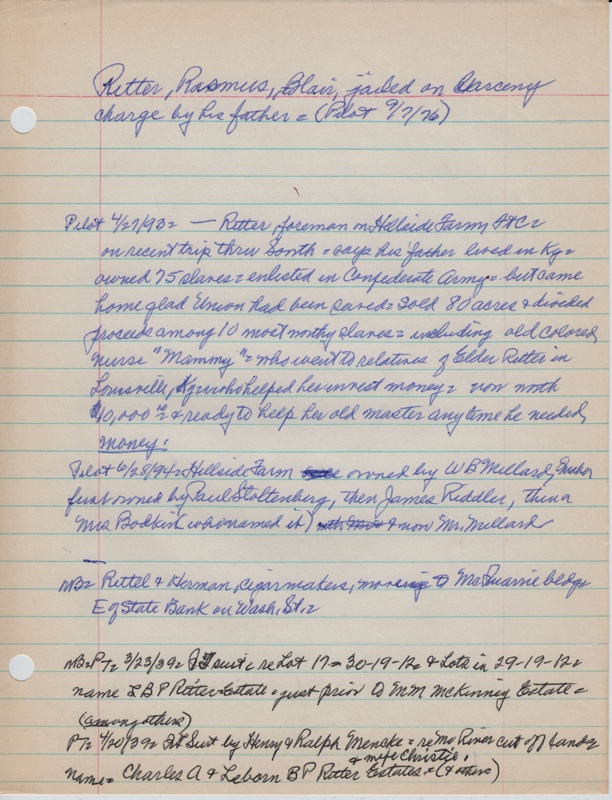 Ritter, Rasmus, Blair, jailed on Larceny
charge by his father = (Pilot 9/7/76)
Pilot 4/27/93 = — Ritter, foreman on Hillside Farm,
on recent trip thru South = says his father lived in Ky =
owned 75 slaves = enlisted in Confederate Army = but came
home glad Union had been saved = sold 80 acres & divided
proceeds among 10 most worthy slaves = including old colored
nurse "Mammy" = who went to relatives of Elder Ritter in
Louisville, Ky who helped her invest money = now worth
$10,000 & ready to help her old master anytime he needed
money!
Pilot 6/28/94 = Hillside Farm owned by W B Millard,
first owned by Paul Stoltenberg, then James Riddler, then a
Mrs Bodkin (who named it) & now Mr. Millard
NB = Rittel & Herman, cigarmakers, moving to McQuarrie bldg
E of State Bank on Wash. St. =
NB = PT = 3/23/39 = suit re Lot 17 = 30-19-12 = & Lots in 29-19-12 =
name L B P Ritter Estate = just prior to M M McKinney Estate =
(among others)
PT = 4/20/39 = Suit by Henry & Ralph Mencke = re Mo River cut off lands
& wife Christie,
name = Charles A & Leborn B P Ritter Estates = (& others)